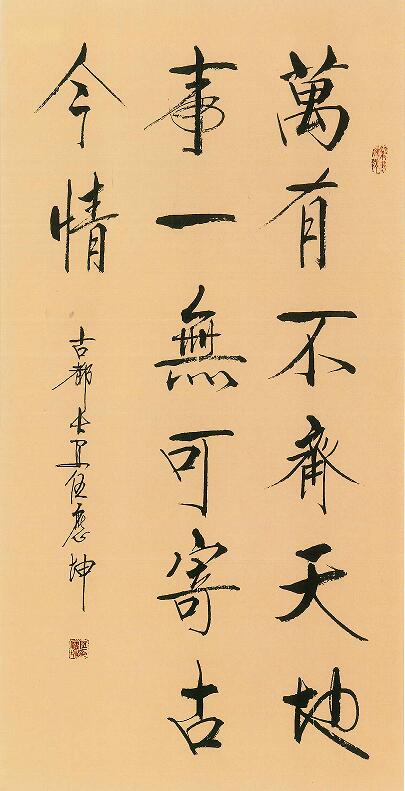 萬有不齊天地
事一無可寄古
今情
古都長安任應坤